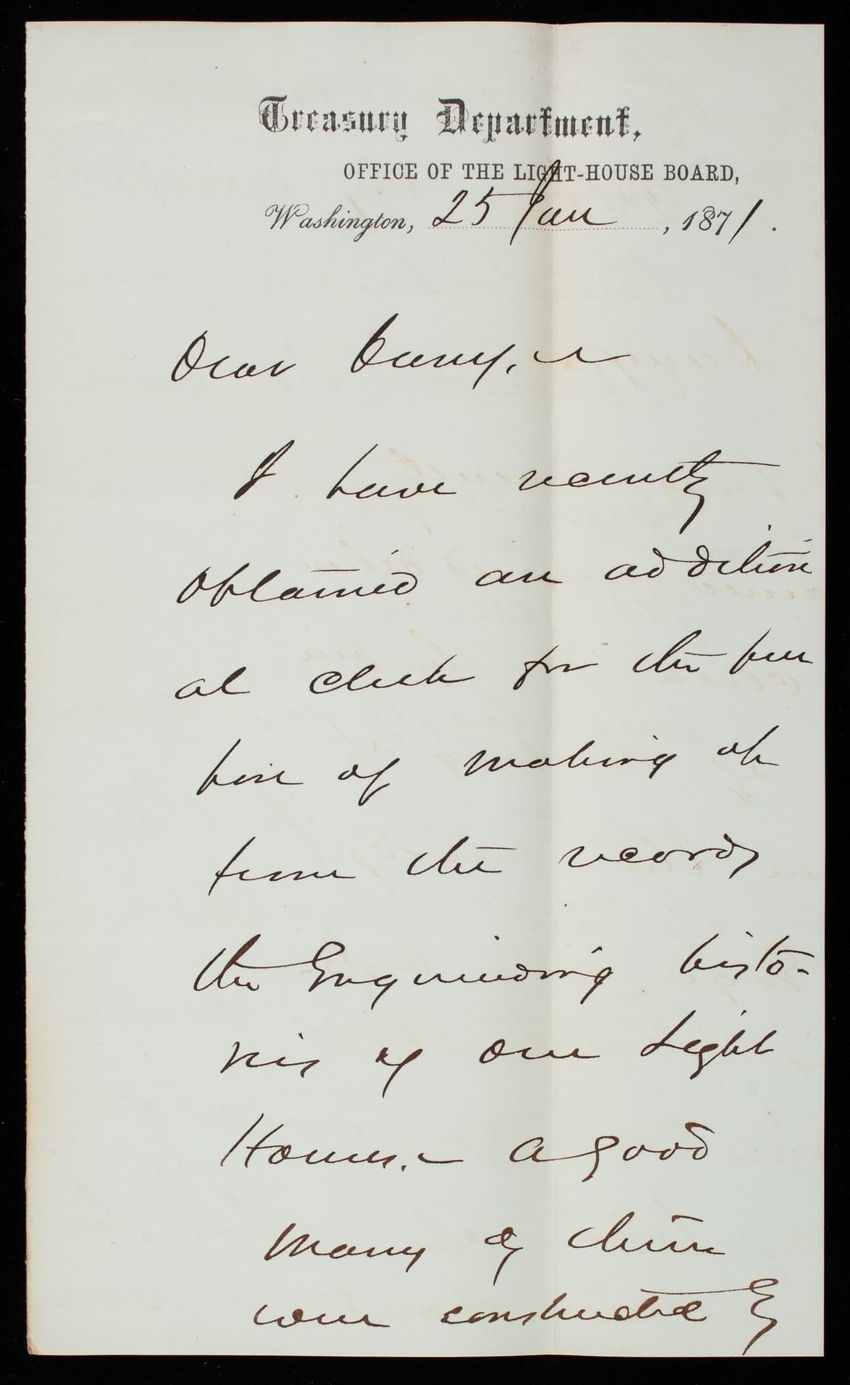 Treasury Department,
OFFICE OF THE LIGHT-HOUSE BOARD,
Washington, 25 Jan, 1871.
Dear Casey, –
I have recently
obtained an addition
al clerk for the pur
pose of making up
from the records
the Engineering histo-
ries of our Light
Houses. – A good
many of them
were constructed by